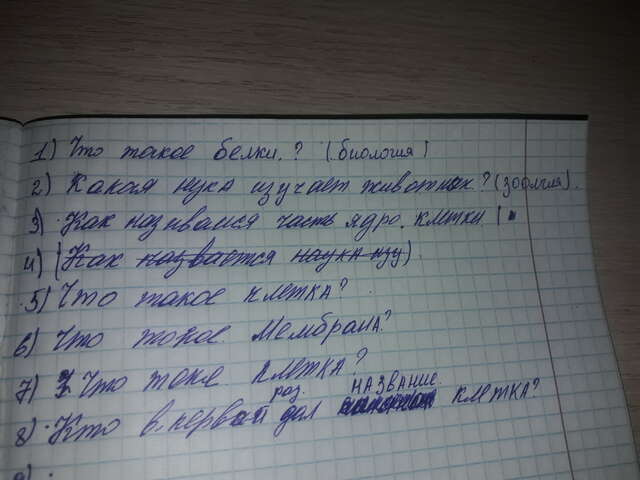 1) Что такое белки.? (биология)
2) Какая нука изучает животных? (зоолгия).
3) Как називаися часть ядро. клетки
4) (Как назвается наука изу).
5) Что такое клетка?
6) Что токое Мембрана?
7) Что таке клетка?
8) Кто в.первой раз дал НАЗВАНИЕ клетка?
9) .